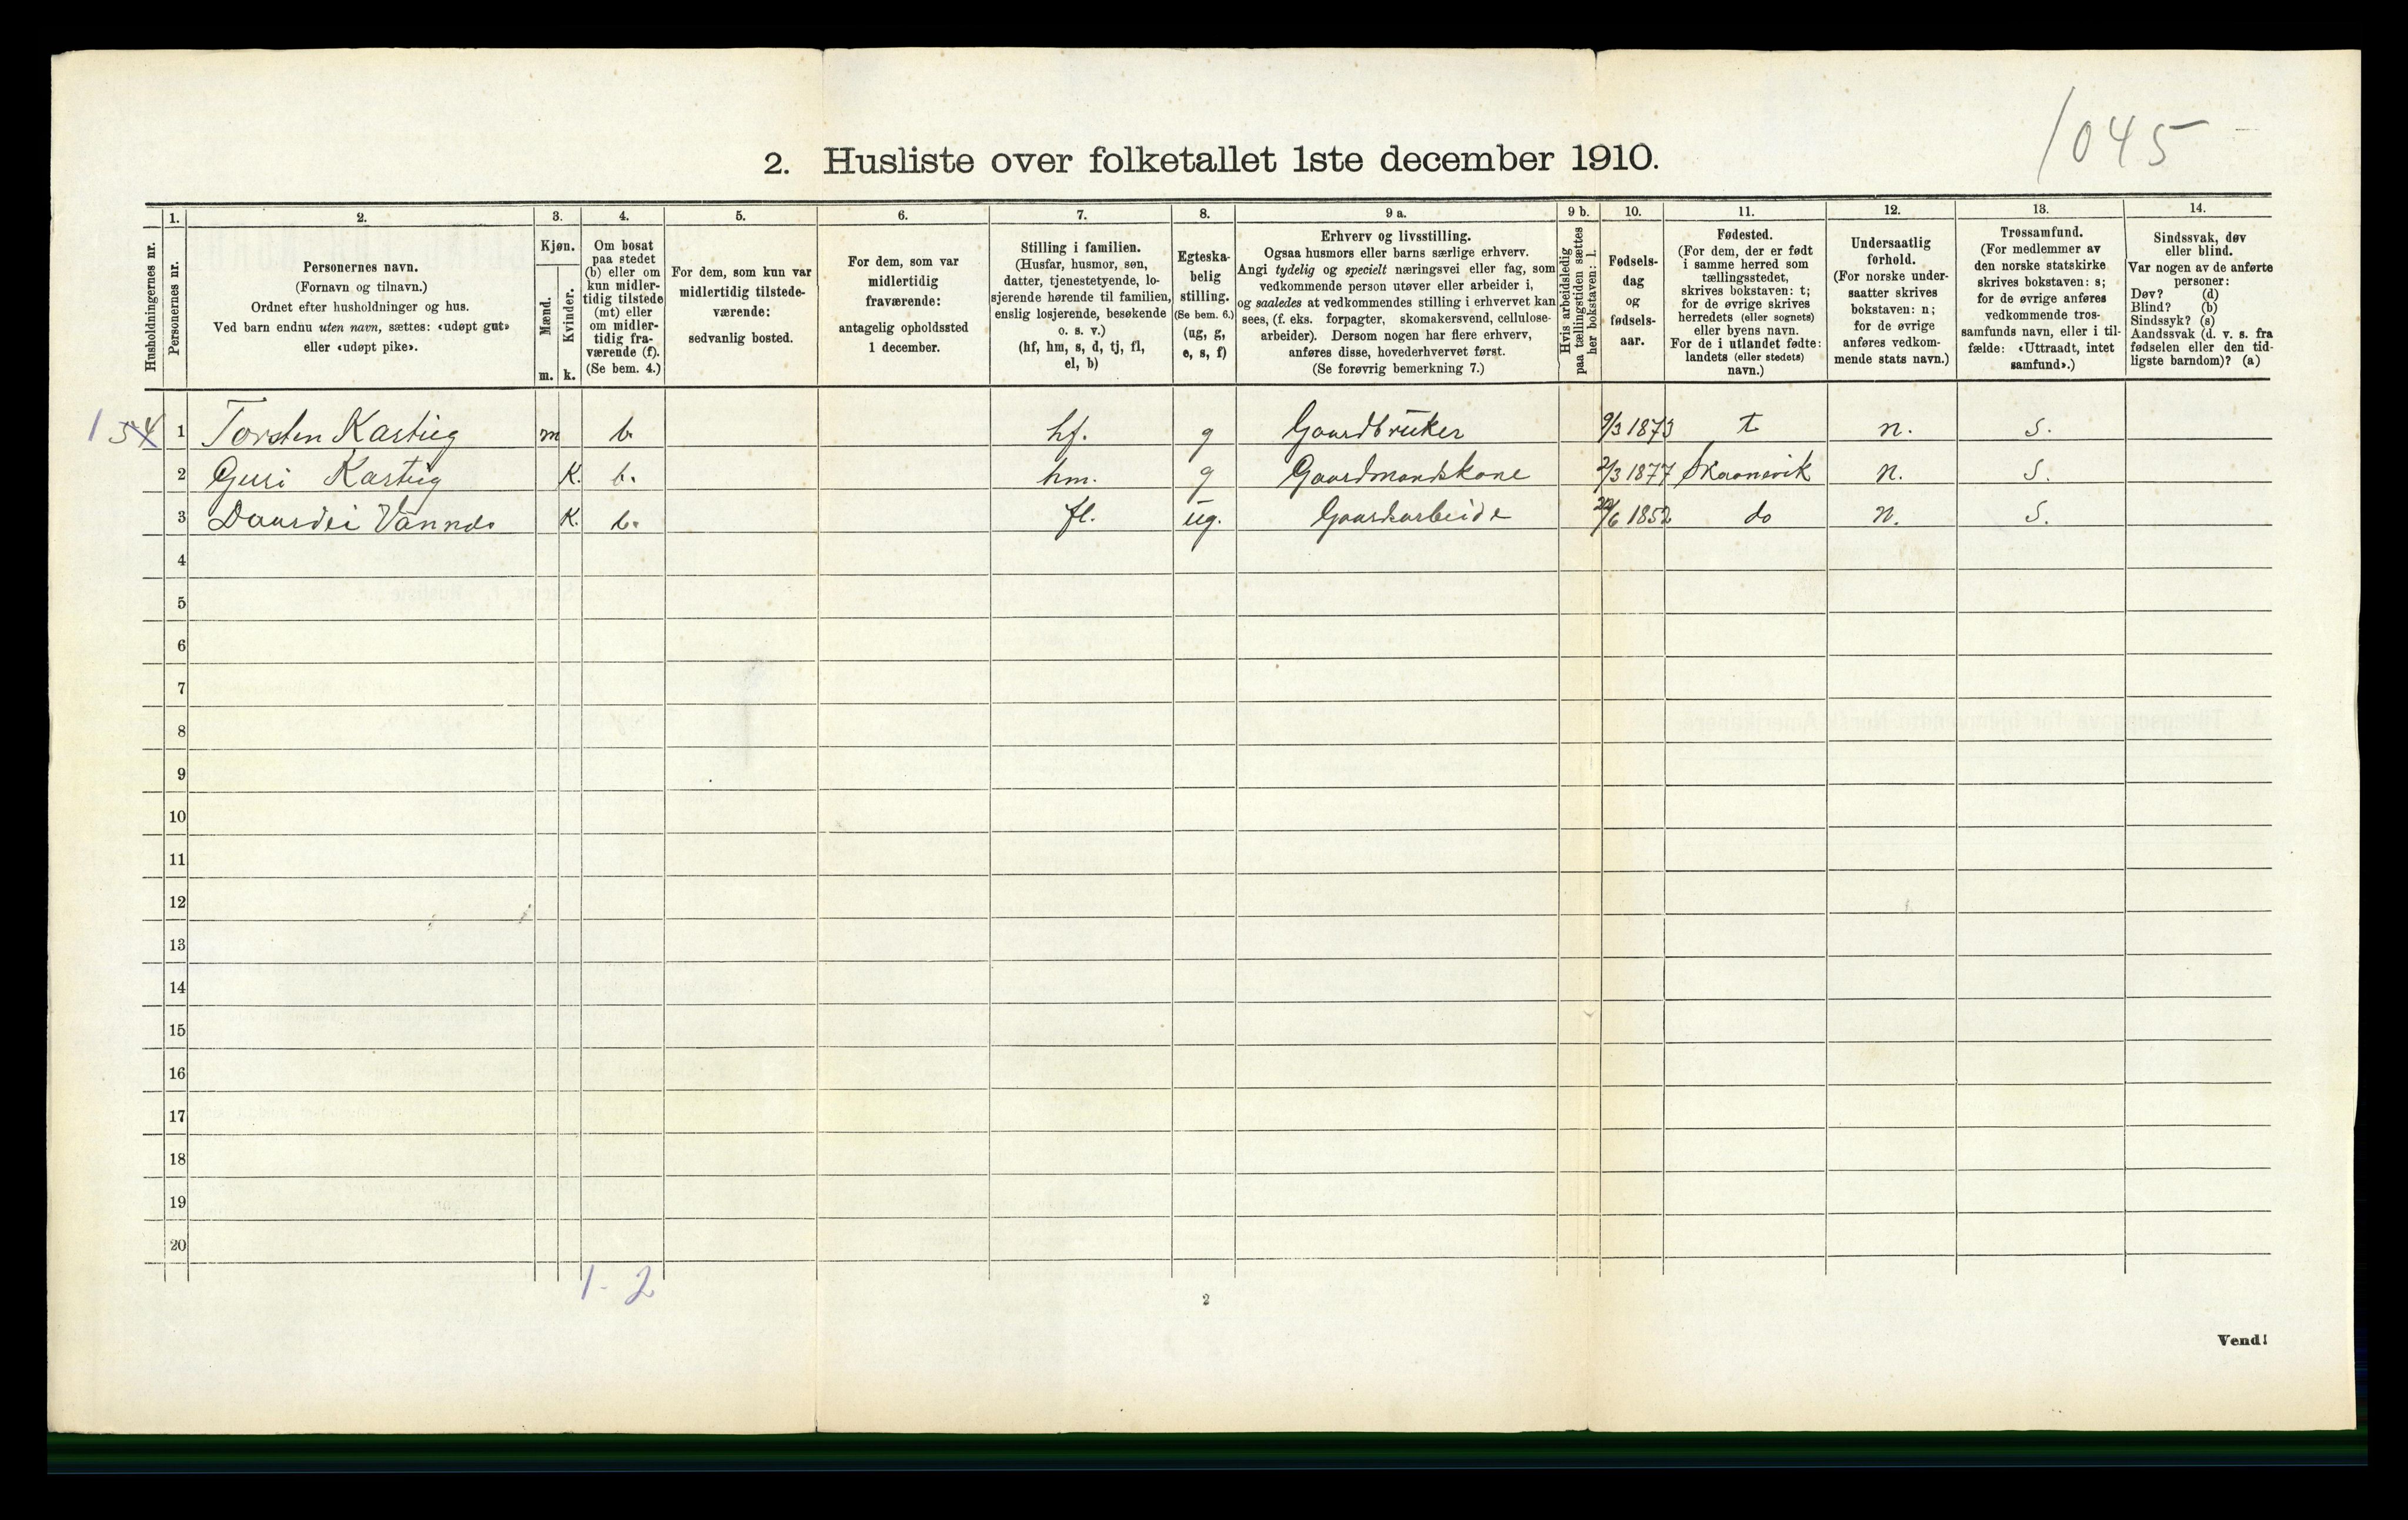 1045
2. Husliste over folketallet 1ste december 1910.
Husholdningernes nr.
1.
Personernes nr.
2.
Personernes navn.
(Fornavn og tilnavn.)
Ordnet efter husholdninger og hus.
Ved barn endnu uten navn, sættes: «udøpt gut»
eller «udøpt pike».
3.
Kjøn.
Mænd.
m.
Kvinder.
k.
4.
Om bosat
paa stedet
(b) eller om
kun midler-
tidig tilstede
(mt) eller
om midler-
tidig fra-
værende (f).
(Se bem. 4.)
5.
For dem, som kun var
midlertidig tilstede-
værende:
sedvanlig bosted.
6.
For dem, som var
midlertidig
fraværende:
antagelig opholdssted
1 december.
7.
Stilling i familien.
(Husfar, husmor, søn,
datter, tjenestetyende, lo-
sjerende hørende til familien,
enslig losjerende, besøkende
o. s. v.)
(hf, hm, s, d, tj, fl,
el, b)
8.
Egteska-
belig
stilling.
(Se bem. 6.)
(ug, g,
e, s, f)
9 a.
Erhverv og livsstilling.
Ogsaa husmors eller barns særlige erhverv.
Angi tydelig og specielt næringsvei eller fag, som
vedkommende person utøver eller arbeider i,
og saaledes at vedkommendes stilling i erhvervet kan
sees, (f. eks. forpagter, skomakersvend, cellulose-
arbeider). Dersom nogen har flere erhverv,
anføres disse, hovederhvervet først.
(Se forøvrig bemerkning 7.)
9 b.
Hvis arbeidsledig
paa tællingstiden sættes
her bokstaven: l.
10.
Fødsels-
dag
og
fødsels-
aar.
11.
Fødested.
(For dem, der er født
i samme herred som
tællingsstedet,
skrives bokstaven: t;
for de øvrige skrives
herredets (eller sognets)
eller byens navn.
For de i utlandet fødte:
landets (eller stedets)
navn.)
12.
Undersaatlig
forhold.
(For norske under-
saatter skrives
bokstaven: n;
for de øvrige
anføres vedkom-
mende stats navn.)
13.
Trossamfund.
(For medlemmer av
den norske statskirke
skrives bokstaven: s;
for de øvrige anføres
vedkommende tros-
samfunds navn, eller i til-
fælde: «Uttraadt, intet
samfund».)
14.
Sindssvak, døv
eller blind.
Var nogen av de anførte
personer:
Døv? (d)
Blind? (b)
Sindssyk? (s)
Aandssvak (d. v. s. fra
fødselen eller den tid-
ligste barndom)? (a)
1 54 1 Torsten Kastvig m b. hf. g Gaardbruker 9/3 1873 t n. s.
2 Guri Kastvig K. b. hm. g Gaardmandskone 2/3 1877 Skaanevik n. s.
3 K. b. fl. ug. Gaardsarbeide 22/6 1852 do n. s.
4
5
6
7
8
9
10
11
12
13
14
15
16
17
18
19
20
1 - 2
2
Vend!